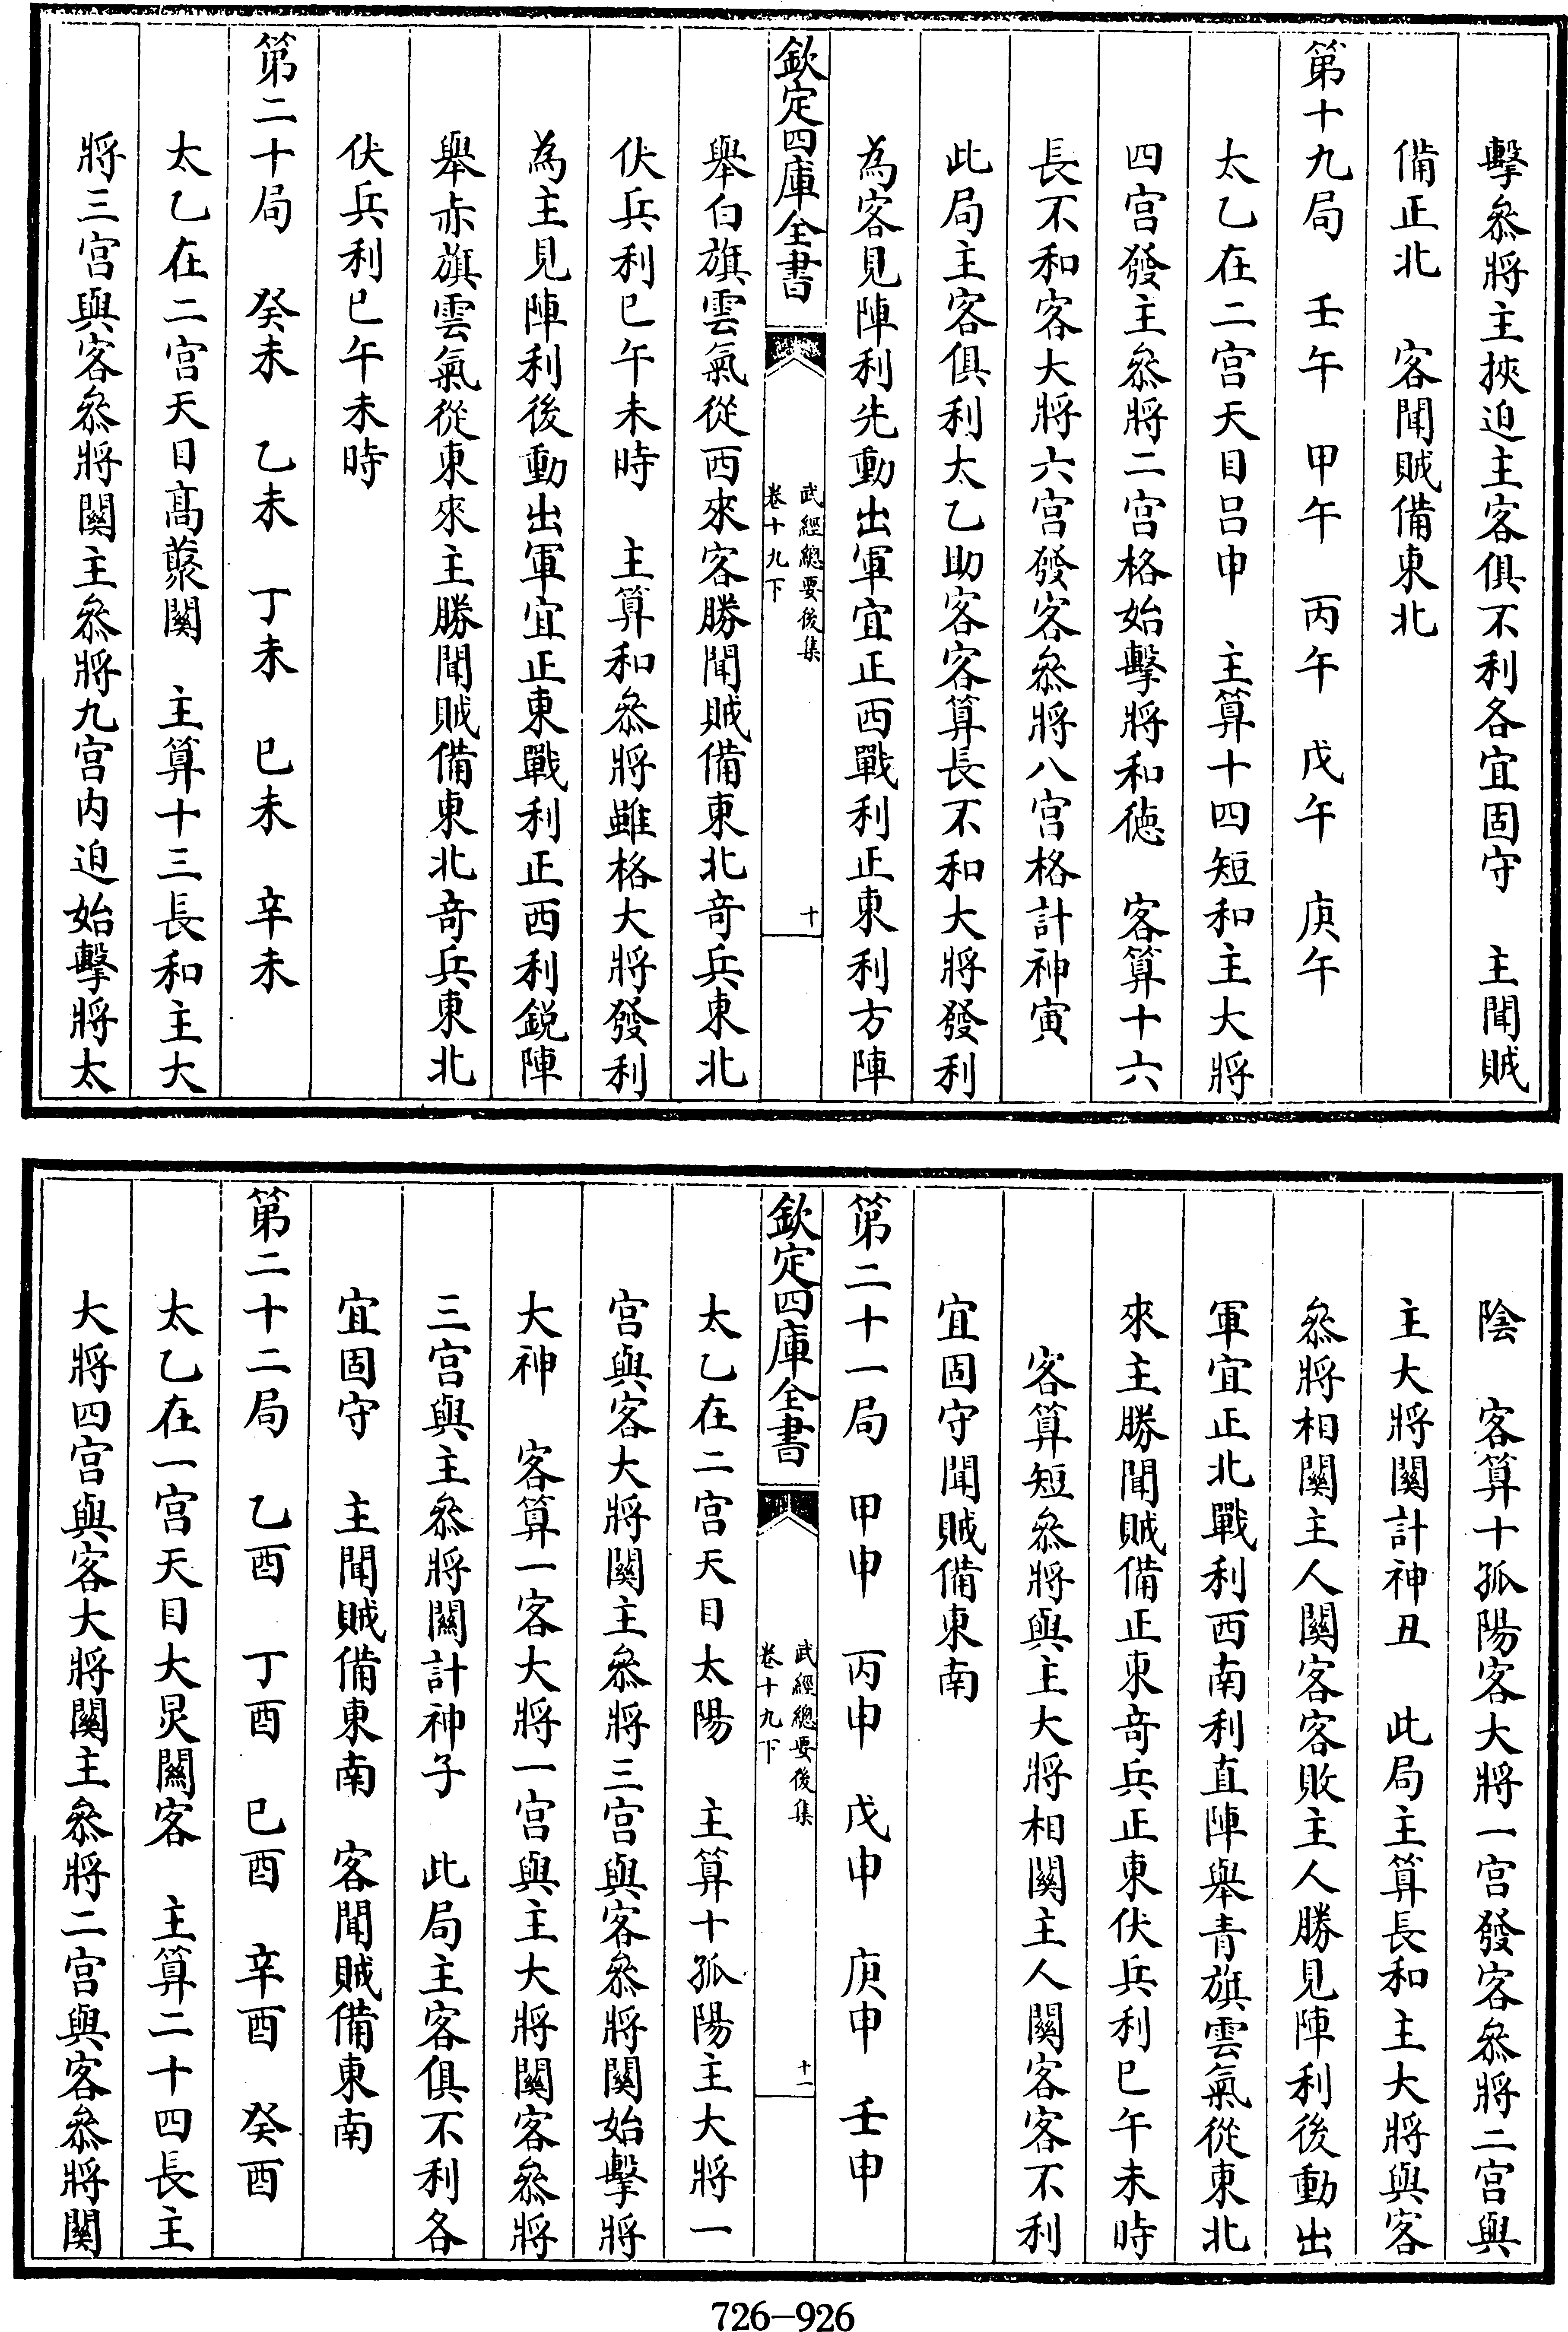 擊叅將主挾迫主客俱不利各宜固守　主聞賊
備正北　客聞賊備東北
第十九局　壬午　甲午　丙午　戊午　庚午
太乙在二宫天目吕申　主算十四短和主大將
四宫發主叅將二宫格始擊將和徳　客算十六
長不和客大將六宫發客叅將八宫格計神寅
此局主客俱利太乙助客客算長不和大將發利
為客見陣利先動出軍宜正西戰利正東利方陣
欽定四庫全書
武經總要後集
卷十九下
十
舉白旗雲氣從西來客勝聞賊備東北竒兵東北
伏兵利巳午未時　主算和叅將雖格大將發利
為主見陣利後動出軍宜正東戰利正西利鋭陣
舉赤旗雲氣從東來主勝聞賊備東北竒兵東北
伏兵利巳午未時
第二十局　癸未　乙未　丁未　巳未　辛未
太乙在二宫天目髙䕺關　主算十三長和主大
將三宫與客叅將關主叅將九宫内迫始擊將太
陰　客算十孤陽客大將一宫發客叅將二宫與
主大將關計神丑　此局主算長和主大將與客
叅將相關主人關客客敗主人勝見陣利後動出
軍宜正北戰利西南利直陣舉青旗雲氣從東北
來主勝聞賊備正東竒兵正東伏兵利巳午未時
客算短叅將與主大將相關主人關客客不利
宜固守聞賊備東南
第二十一局　甲申　丙申　戊申　庚申　壬申
欽定四庫全書
武經總要後集
卷十九下
十一
太乙在二宫天目太陽　主算十孤陽主大將一
宫與客大將關主叅將三宫與客叅將關始擊將
大神　客算一客大將一宫與主大將關客叅將
三宫與主叅將關計神子　此局主客俱不利各
宜固守　主聞賊備東南　客聞賊備東南
第二十二局　乙酉　丁酉　巳酉　辛酉　癸酉
太乙在一宫天目大炅關客　主算二十四長主
大將四宫與客大將關主叅將二宫與客叅將關
726-926